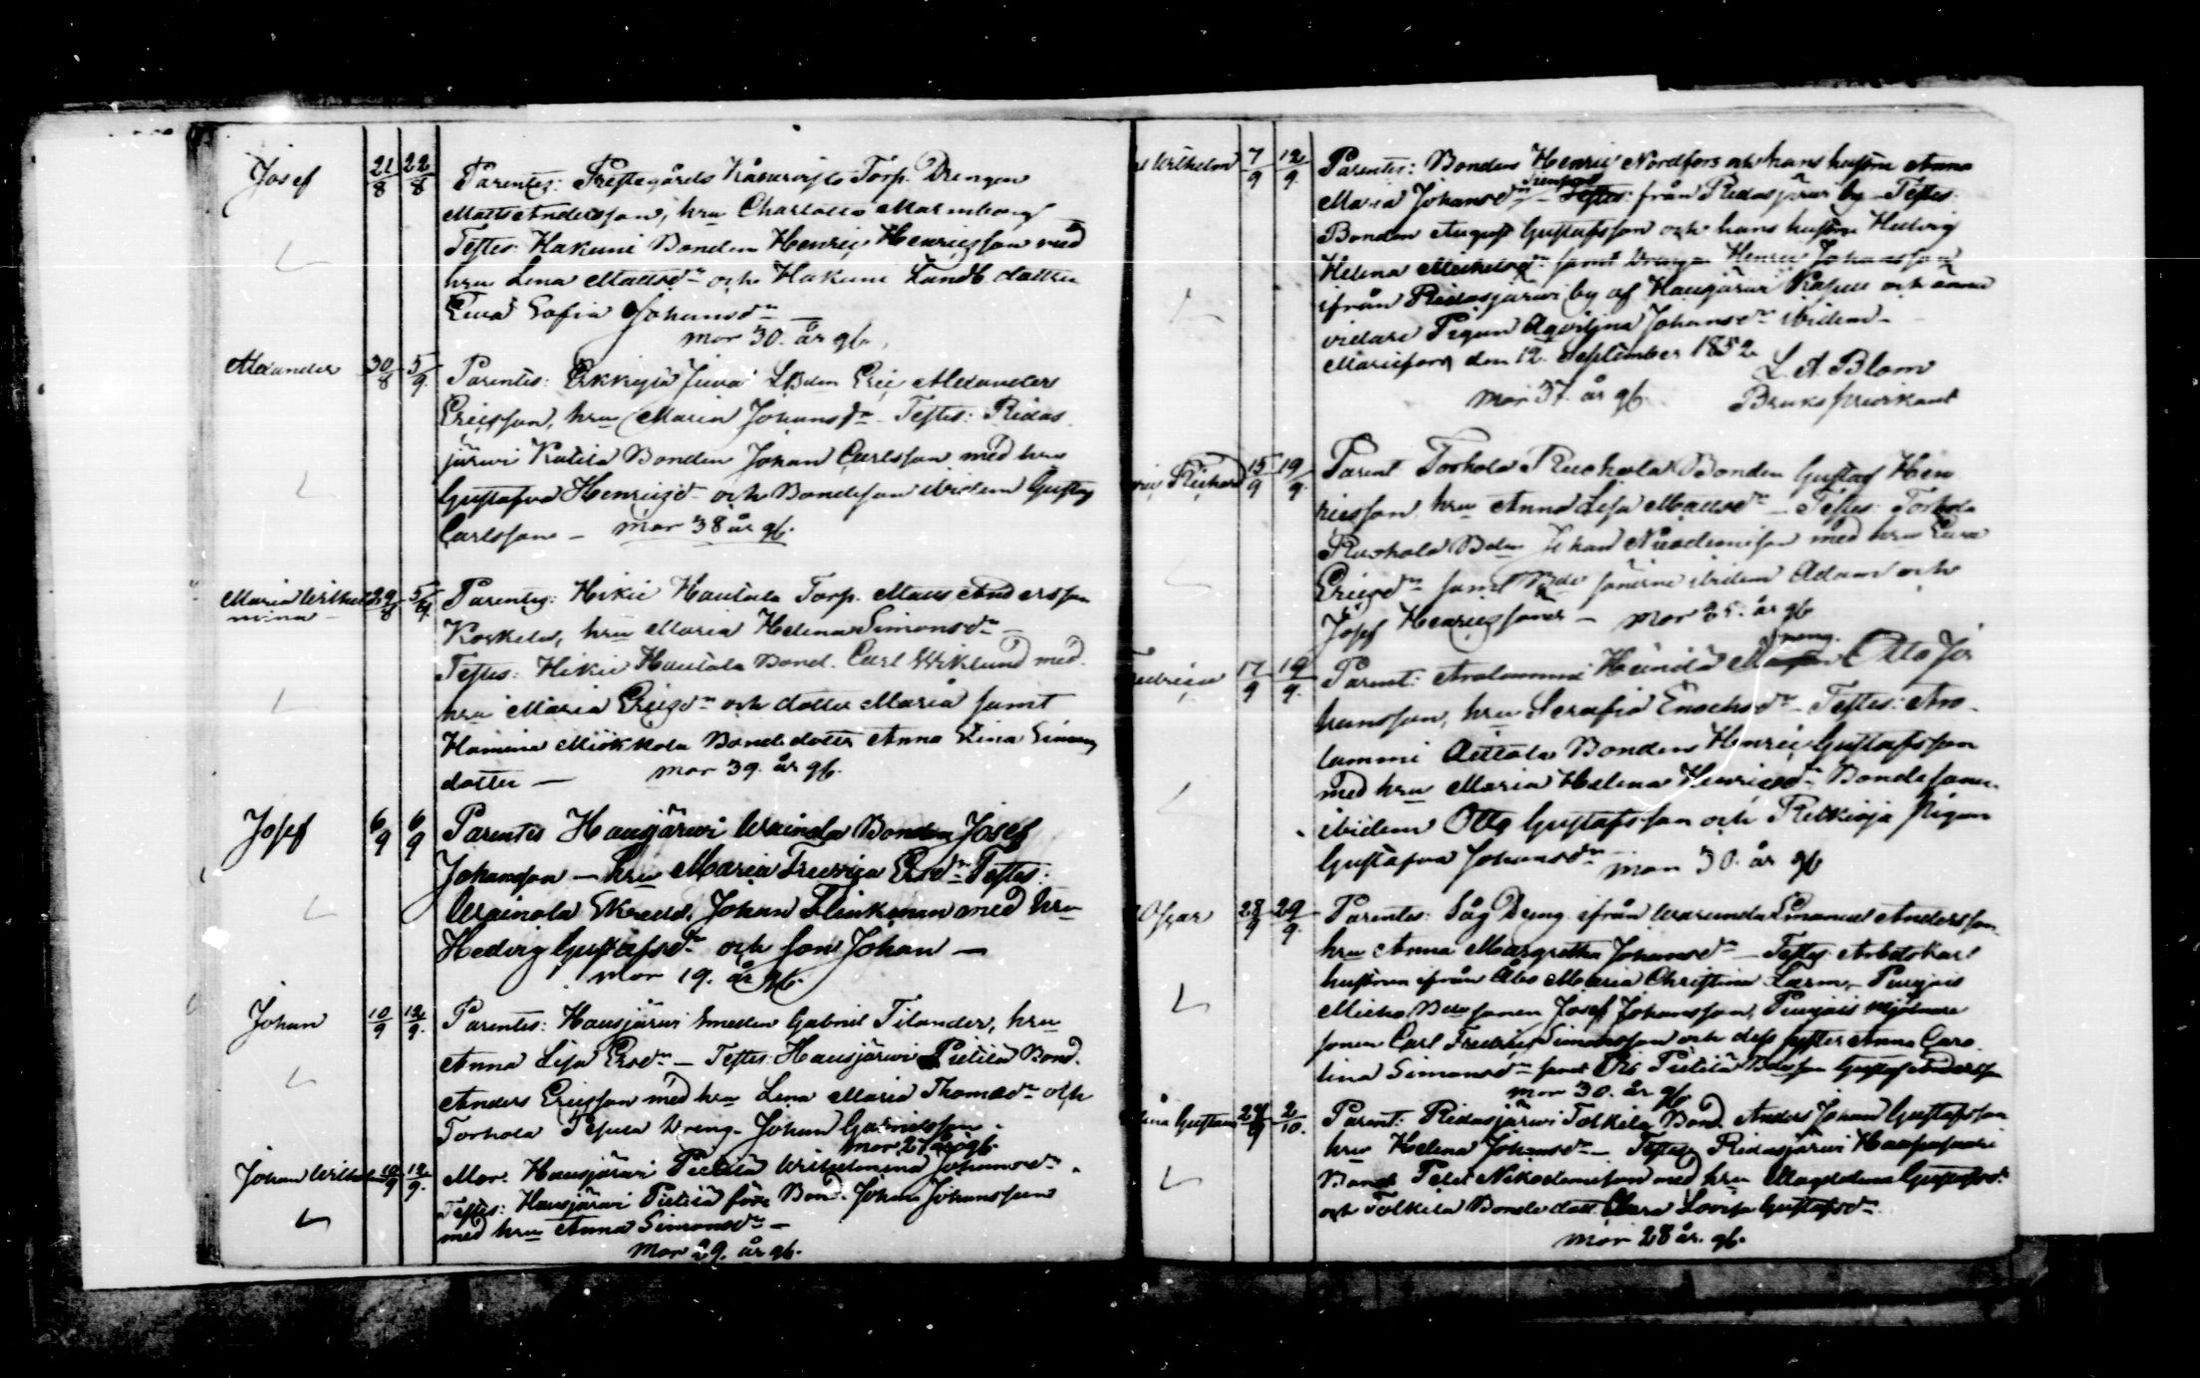 Josef 21/8 22/8 Parentes: Prestegårds Torp. Drengen
Matts Andersson, hru Charlotta Malmberg
Testes: Hakuni Bonden Henric Henricsson med
hru Lena Mattsdr och Hakuni Landb. dotter
Eva Sofia Johansdr
mor 30. år gl.
Alexander 30/8 5/9. Parentes: Erkkylä Juva LBden Eric Alexander
Ericsson, hru Maria Johansdr Testes: Ridas
järwi Katila Bonden Johan Carlsson med hru
Gustafva Henricsdr och Bondeson ibidem Gustaf
Carlsson – mor 38 år gl.
Maria Wilhel 29/8 5/9. Parentes: Hikie Hautala Torp. Matts Andersson
mina – Koskela, hru Maria Helena Simonsdr –
Testes: Hikie Hautala Bond. Carl Wiklund med
hru Maria Ericsdr och dotter Maria samt
Hamina Bondedotter Anna Stina Simons
dotter – mor 39. år gl.
Josef 6/9 6/9 Parentes Hausjärwi Wainola Bonden Josef
Johansson – hru Maria Fredrica Ersdr Testes:
Wainola Skredd. Johan Flinkman med hru
Hedvig Gustafsdr och son Johan –
mor 19. år gl.
Johan 10/9 12/9. Parentes: Hausjärwi Smeden Gabriel Tilander, hru
Anna Lisa Ersdr – Testes: Hausjärwi Pietilä Bond.
Anders Ericsson med hru Lena Maria Thomasdr och
Torhola Dreng. Johan Gabrielsson.
mor 27 år gl.
Johan Wilhelm 10/9 12/9. Mor: Hausjärwi Pietilä Wilhelmina Johansdr.
Testes: Hausjärwi Pietilä förre Bond. Johan Johansson
med hru Anna Simonsdr –
mor 29. år gl.
Wilhelm 7/9 12/9. Parentes: Bonden Henric Nordfors och hans hustru Anna
Maria Johansdr – Testes: från Ridasjärwi by – Testes:
Bonden August Gustafsson och hans hustru Hedvig
Helena Michelsdr samt Drengen Henric Johansson
ifrån Ridasjärwi by af Hausjärwi Kapell och ännu
vidare Pigan Johansdr ibidem –
Mariefors den 12. September 1852.
L. A. Blom
mor 37. år gl. Bruks predikant
Richard 15/9 19/9. Parent Torhola Ruohola Bonden Gustaf Hen
ricsson, hru Anna Lisa Mattsdr – Testes: Torhola
Ruohola Bden Johan Nicodemison med hru Eva
Ericsdr samt Bde sönerne ibidem Adam och
Josef Henricssoner – mor 25. år gl.
Fredrica 17/9 19/9. Parent: Arolammi Heinilä Dreng. Otto Jo
hansson, hru Serafia Enochsdr – Testes: Aro
lammi Bonden Henric Gustafsson
med hru Maria Helena Henricsdr Bondesonen
ibidem Otto Gustafsson och Pigan
Gustafva Johansdr mor 30. år gl.
Oscar 28/9 29/9. Parentes: Såg Dreng. ifrån Emanuel Andersson
hru Anna Margretha Johansdr – Testes Arbetskarl
hustrun ifrån Åbo Maria Christina
Bde sonen Josef Johansson, Mjölnare
sonen Carl Fredric Simonsson och dess syster Anna Caro
lina Simonsdr samt Pietilä Bdeson Gustaf Andersson
mor 30. år gl.
Gustava 28/9 2/10. Parent: Ridasjärwi Tolkila Bond. Anders Johan Gustafsson
hru Helena Johansdr – Testes Ridasjärwi Haapasaari
Bond. Petter Nikodemison med hru Magdalena Gustafsdr
och Tolkila Bonde dott. Clara Lovisa Gustafsdr
mor 28 år. gl.